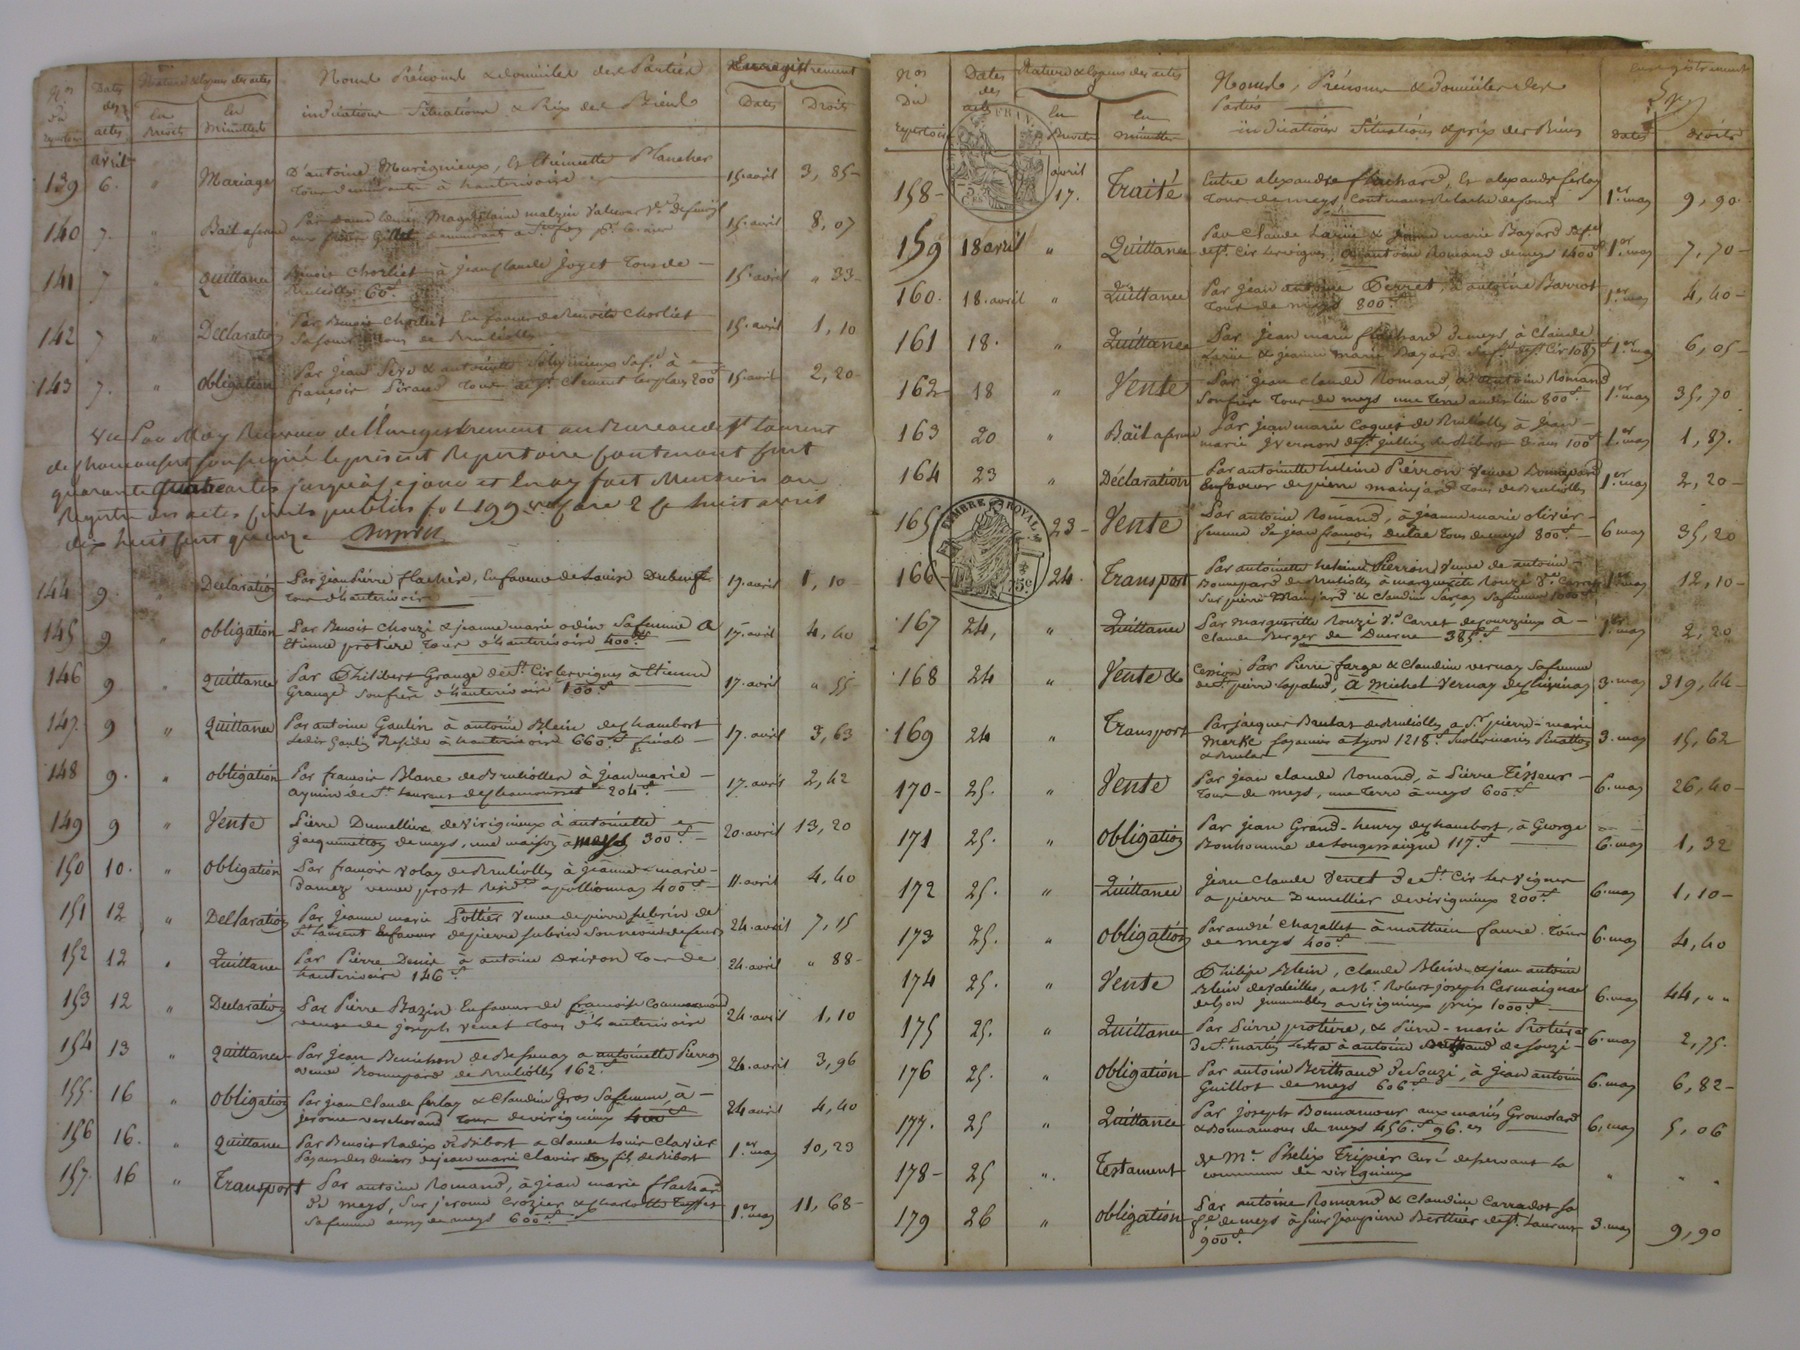 Nos du Repertoire
Dates des actes
Nature & espece des actes
En Brevets
En Minuttes
Noms Prénoms & domiciles des Parties
indications Situations & Prix des Biens
Enregistrement
Dates
Droits
avril
139 6. " Mariage D'antoine Murignieux, & Etiennette Plancher 15 avril 3, 85
tous demeurants à hauterivoire
140 7. " Bail a ferme Par Magdelaine 15 avril 8, 07
aux frères Gillet
141 7 " Quittance Benoit Chorliet à jean Claude Goyet tous de 15 avril " 33
Brulliolles 60f.
142 7 " Déclaration Par Benoit Chorliet En faveur de Benoite Chorliet 15 avril 1, 10
Sa sœur tous de Brulliolles
143 7. " Obligation Par jean Seve & antoinette Sa fe. à 15 avril 2, 20
françois Siraud tous de St. Clement les places 200f
Vu Par Moy Receveur de l'Enregistrement au Bureau de St Laurent
de chamousset soussigné le présent Repertoire contenant Cent
quarante trois actes jusqu'à ce jour et Enay fait Mention au
Registre des actes Civils publics fol 199 vo Case 2 Ce huit avril
dix huit cent quinze
144 9. " Declaration Par jean Pierre flachere, En faveur de Louise Dubeuf 17 avril 1, 10
tous d'hauterivoire
145 9 " obligation Par Benoit Chouzi & jeanne marie odin Sa femme a 17. avril 4, 40
Etienne protiere tous d'hauterivoire 400f
146 9 " Quittance Par Philibert Grange de St. Cir les vignes à Etienne 17. avril " 55
Grange Son frère d'hauterivoire 100f
147. 9 " Quittance Par antoine Goutin à antoine Blein de chambost 17. avril 3, 63
Ledit Goutin Reside à hauterivoire 660f
148 9. " obligation Par francois Blanc de Brulliolles à jean marie 17. avril 2, 42
aymin de St. Laurent de chamousset 204f
149 9 " Vente Pierre Dumellier de virigneux à antoinette 20 avril 13, 20
jacquemetton de meys, une maison à meys 300f.
150 10. " obligation Par francois volay de Brulliolles à jeanne marie 11 avril 4, 40
Damez veuve prost Resid. a pollionnay 400f
151 12 " Declaration Par jeanne marie Sottier Veuve de pierre subrin de 24 avril 7, 15
St. Laurent En faveur de pierre subrin
152 12 " Quittance Par Pierre Denis à antoine Drivon tous de 24 avril " 88
hauterivoire 146f
153 12 " Declaration Par Pierre Bazin En faveur de francoise 24 avril 1, 10
veuve de joseph Venet tous d'hauterivoire
154 13 " Quittance Par jean Benichon de Bessenay a antoinette Pierron 24 avril 3, 96
veuve Bonnepard de Brulliolles 162f
155. 16 " obligation Par jean Claude ferlay & Claudine Gros Sa femme, à 24 avril 4, 40
jerome vercherand tous de virigneux 400f
156 16. " Quittance Par Benoit Radix de Ribost a Claude Louis Clavier 1er. may 10, 23
Payant des deniers de jean marie Clavier Son fils de Ribost
157. 16 " Transport Par antoine Romand, à jean marie flachard
de meys, Sur jerome Crozier & Charlotte 1er. may 11, 68
Sa femme aussy de meys 600f
Nos Du Repertoire
Dates des actes
Nature & espece des actes
En Brevets
En Minuttes
Noms, Prénoms & Domiciles des Parties
indications Situations & prix des Biens
Enregistrement
dates
droits
TIMBRE ROYAL
158 avril 17. Traité Entre alexandre flachard, & alexandre ferlay 1er. may 9, 90
tous de meys,
159 18 avril " Quittance Par Claude Larue & jeanne marie Bazard Sa fe 1er. may 7, 70
de St. Cir les vignes, à antoine Romand de meys 1400f
160. 18. avril " Quittance Par jean antoine Perret, à antoine Barrot 1er. may 4, 40
tous de meys 800f
161 18. " Quittance Par jean marie flachard de meys à Claude 1er. may 6, 05
Larue & jeanne marie Bazard Sa fe. de St. Cir 1087f
162 18 " Vente Par jean claude Romand, à antoine Romand 1er. may 35, 70
Son frère tous de meys une terre audit lieu 800f
163 20 " Bail a ferme Par jean marie Coquet de Brulliolles à jean 1er. may 1, 87.
marie Gvernon de St. jullien
164 23 " Déclaration Par antoinette heleine Pierron Veuve Bonnepard 1er. may 2, 20
En faveur de pierre mainjard tous de Brulliolles
165 23 Vente Par antoine Romand, à jeanne marie olivier 6 may 35, 20
femme de jean françois Dulac tous de meys 800f
166 24. Transport Par antoinette heleine Pierron Veuve de antoine 1er may 12, 10
Bonnepard de Brulliolles à marguerite Rouzi Ve. Carret
Sur pierre Mainjard & Claudine Sarcey Sa femme 1000f
167 24, " Quittance Par Marguerite Rouzi Ve. Carret de courzieux à 1er may 2, 20
Claude Berger de Duerne 385f
168 24 " Vente & Cession Par Pierre farge & Claudine vernay Sa femme 3. may 319, 44
de St. pierre Lapalud, à Michel Vernay de chevinay
169 24 " Transport Par jacques Brulas de Brulliolles a Sr. pierre marie 3. may 15, 62
Merke à Lyon 1218f
170 25. " Vente Par jean claude Romand, à Pierre Tisseur 6. may 26, 40
tous de meys, une terre à meys 600f
171 25. " Obligation Par jean Grand henry de chambost, à George 6. may 1, 32
Bonhomme de Longessaigne 117f
172 25. " Quittance jean claude Venet de St. Cir Les Vignes 6. may 1, 10
a pierre Dumellier de virigneux 200f
173 25. " Obligation Par andré Chazallet à mathieu faure tous 6. may 4, 40
de meys 400f
174 25. " Vente Philipe Blein, Claude Blein & jean antoine
Blein de valeilles, a Mr. Robert joseph Carmaignac 6. may 44, " "
de Lyon immeubles a virigneux prix 1000f
175 25. " Quittance Par Pierre protiere, & Pierre marie Protiere 6. may 2, 75.
de St. martin Lestra à antoine Berthaud de Souzi
176 25. " Obligation Par antoine Berthaud de Souzi, à jean antoine 6. may 6, 82
Guillot de meys 606f
177. 25 " Quittance Par joseph Bonnamour aux mariés Gromolard 6. may 5, 06
& Bonnamour de meys 456f. 96 c
178 25 " Testament de Mr. Phelix Tripier Curé desservant La " "
commune de virigneux
179 26 " Obligation Par antoine Romand & Claudine Carradot Sa
fe. de meys à Sieur jean pierre Berthier de St. Laurent 3. may 9, 90
900f.